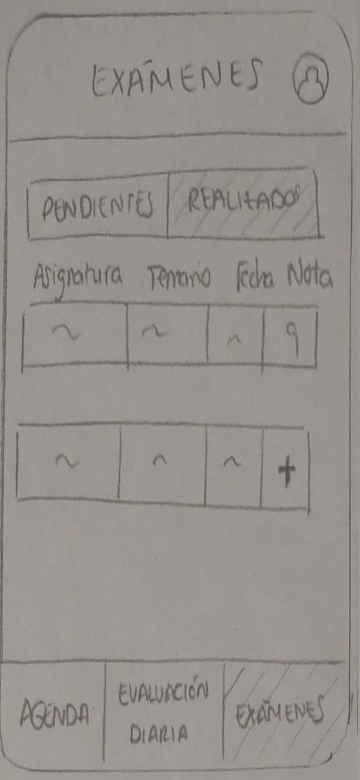 EXÁMENES
PENDIENTES REALIZADOS
Asignatura Temario Fecha Nota
~ ~ ~ 9
~ ~ ~ +
AGENDA EVALUACIÓN DIARIA EXÁMENES